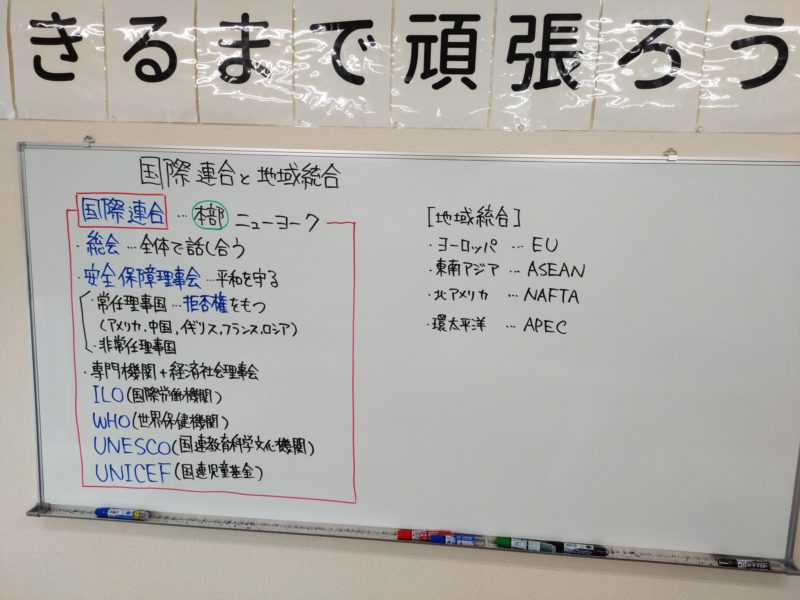 きるまで頑張ろう
国際連合と地域統合
国際連合 … 本部 ニューヨーク
・総会 … 全体で話し合う
・安全保障理事会 … 平和を守る
・常任理事国 … 拒否権をもつ
(アメリカ, 中国, イギリス, フランス, ロシア)
・非常任理事国
・専門機関 + 経済社会理事会
ILO (国際労働機関)
WHO (世界保健機関)
UNESCO (国連教育科学文化機関)
UNICEF (国連児童基金)
[地域統合]
・ヨーロッパ … EU
・東南アジア … ASEAN
・北アメリカ … NAFTA
・環太平洋 … APEC